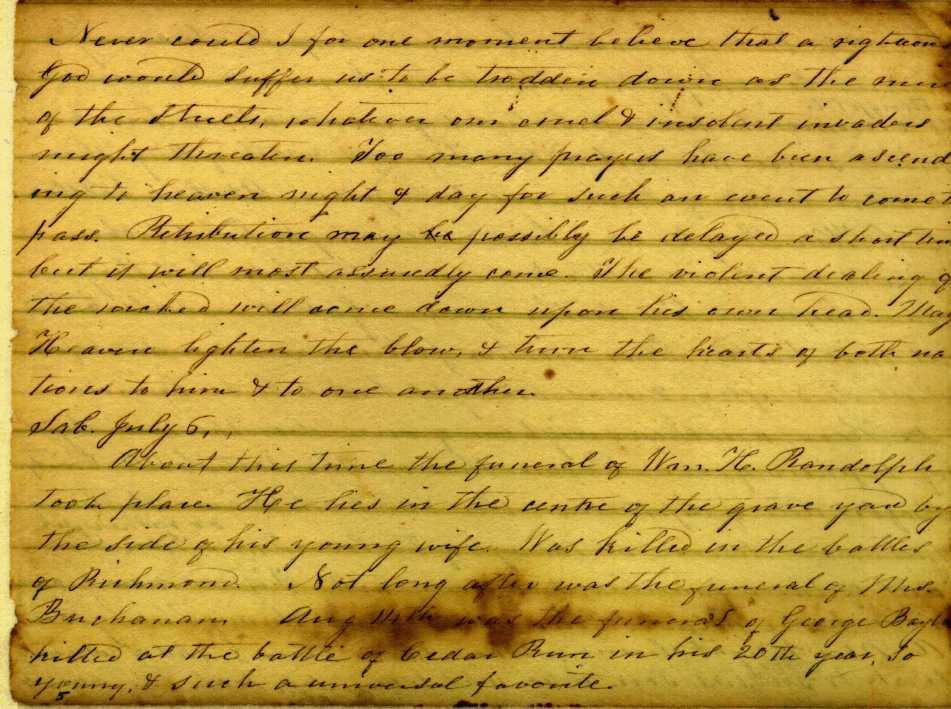 Never could I for one moment believe that a righteous
God would suffer us to be trodden down as the mire
of the streets, whatever our cruel & insolent invaders
might threaten. Too many prayers have been ascend
ing to heaven night & day for such an event to come to
pass. Retribution may possibly be delayed a short time
but it will most assuredly come. The violent dealing of
the wicked will come down upon his own head. May
Heaven lighten the blow, & turn the hearts of both na
tions to him & to one another.
Sab. July 6,
About this time the funeral of Wm. H. Randolph
took place. He lies in the centre of the grave yard by
the side of his young wife. Was killed in the battles
of Richmond. Not long after was the funeral of Mrs.
Buchanan. Aug was the funeral of George
killed at the battle of Cedar Run in his 20th year, So
young, & such a universal favorite.
5